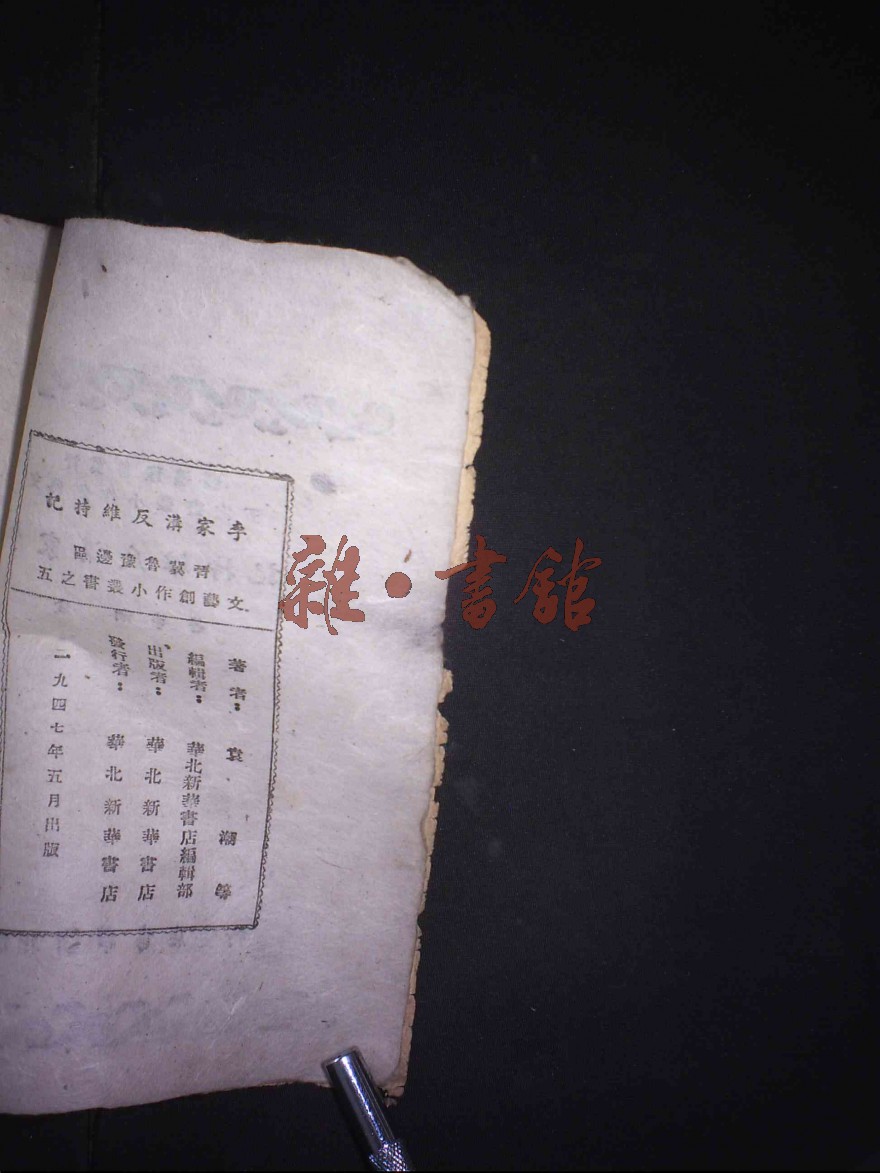 李家溝反維持記
晋冀魯豫邊區
文藝創作小叢書之五
著者：袁潮等
編輯者：華北新華書店編輯部
出版者：華北新華書店
發行者：華北新華書店
一九四七年五月出版
雜·書館